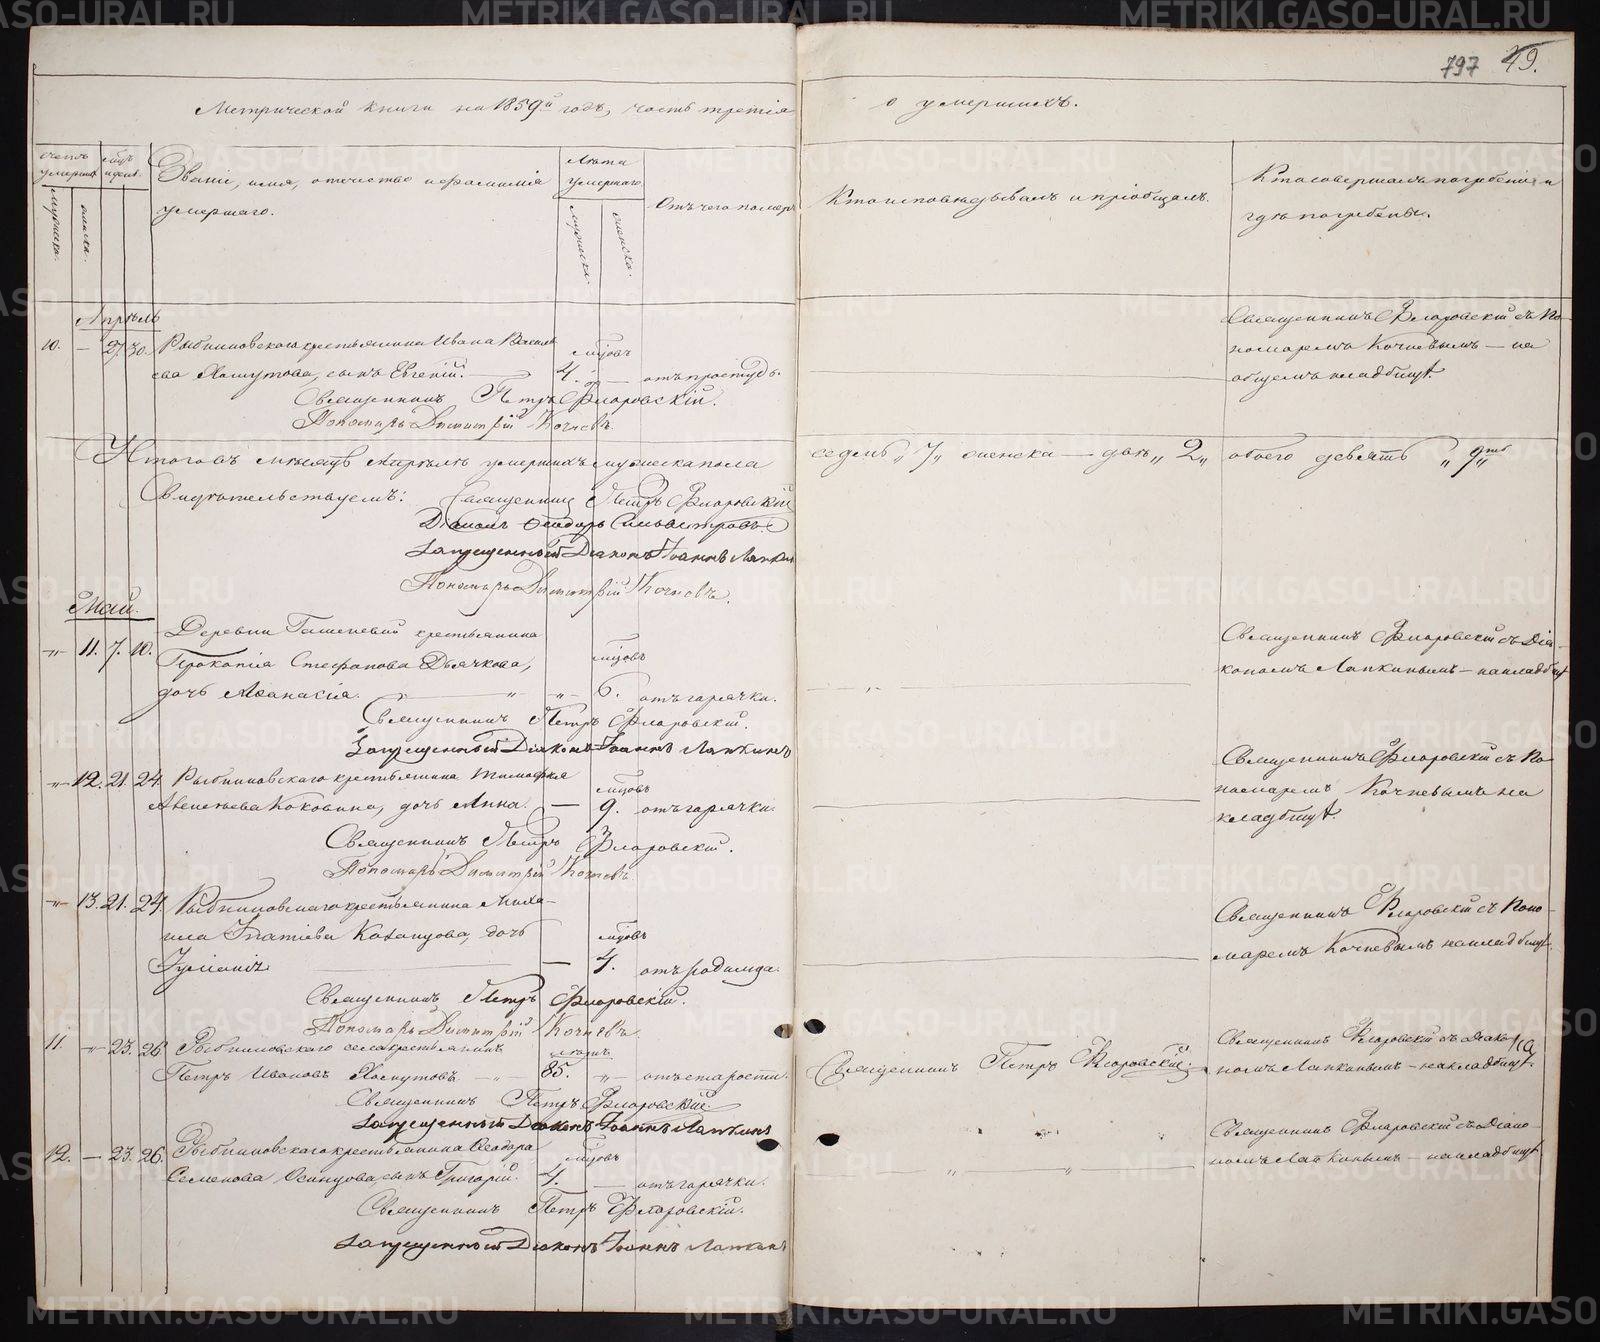 797 49.
Метрической книги на 1859й годъ, часть третія о умершихъ.
Счетъ умершихъ
Мужеска.
Женска.
Мцъ и день.
Званіе, имя, отчество и фамилія
умершаго.
Лѣта
умершаго.
Мужеска.
Женска.
Отъ чего померъ
Кто исповѣдывалъ и пріобщалъ.
Кто совершалъ погребеніе и
гдѣ погребены.
Апрѣль
10. — 27. 30. Рыбниковскаго крестьянина Ивана Василь
ева Хомутова, сынъ Евгеній. мцовъ 4. — отъ простуды.
Священникъ Флоровскій съ По-
номаремъ Кочневымъ — на
общемъ кладбищѣ.
Священникъ Петръ Флоровскій.
Пономарь Димитрій Кочневъ.
Итого въ мѣсяцѣ Апрѣлѣ умершихъ мужеска пола седмь „7„ женска — двѣ „2„ обоего девять „9ть„
Свидѣтельствуемъ: Священникъ Петръ Флоровскій
Діаконъ Ѳеодоръ Сильвестровъ
Запрещенный Діаконъ Іоаннъ Лапкинъ
Пономарь Димитрій Кочневъ.
Май.
-„- 11. 7. 10. Деревни Гашеневой крестьянина
Прокопія Стефанова Дьячкова,
дочь Аѳанасія. „ — „ мцовъ 6. отъ горячки.
Священникъ Флоровскій съ Діа-
кономъ Лапкинымъ — на кладбищѣ
Священникъ Петръ Флоровскій.
Запрещенный Діаконъ Іоаннъ Лапкинъ
-„- 12. 21. 24. Рыбниковскаго крестьянина Тимофея
Авксентьева Коковина, дочь Анна. — мцовъ 9. отъ горячки.
Священникъ Флоровскій съ По
номаремъ Кочневымъ на
кладбищѣ.
Священникъ Петръ Флоровскій.
Пономарь Димитрій Кочневъ
-„- 13. 21. 24. Рыбниковскаго крестьянина Миха-
ила Игнатіева Казанцова, дочь
Іуліанія — мцовъ 4. отъ родимца.
Священникъ Флоровскій съ Поно-
маремъ Кочневымъ на кладбищѣ.
Священникъ Петръ Флоровскій.
Пономарь Димитрій Кочневъ
11. -„- 23. 26. Рыбниковскаго села крестьянинъ
Петръ Ивановъ Хомутовъ. — 85. -„- отъ старости.
Священникъ Петръ Флоровскій.
Священникъ Флоровскій съ Діако-
номъ Лапкинымъ — на кладбищѣ.
Священникъ Петръ Флоровскій.
Запрещенный Діаконъ Іоаннъ Лапкинъ
12. — 23. 26. Рыбниковскаго крестьянина Ѳеодора
Семенова Осинцова, сынъ Григорій. мцовъ 4. — отъ горячки.
Священникъ Флоровскій съ Діако-
номъ Лапкинымъ — на кладбищѣ.
Священникъ Петръ Флоровскій.
Запрещенный Діаконъ Іоаннъ Лапкинъ
METRIKI.GASO-URAL.RU